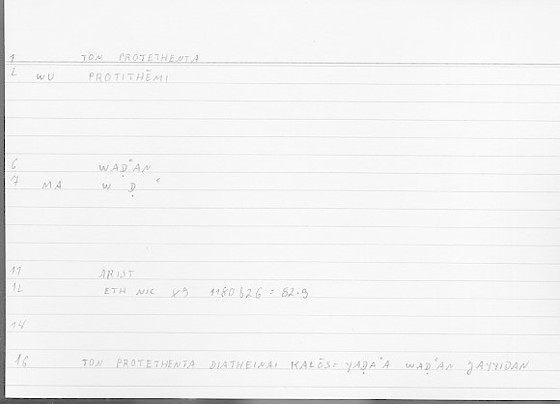 1 TON PROTETHENTA
2 WU PROTITHĒMI
6 WAḌʿAN
7 MA W Ḍ ʿ
11 ARIST
12 ETH NIC X9 1180 b26 = 82.9
14
16 TON PROTETHENTA DIATHEINAI KALŌS: YAḌAʿA WAḌʿAN ǦAYYIDAN